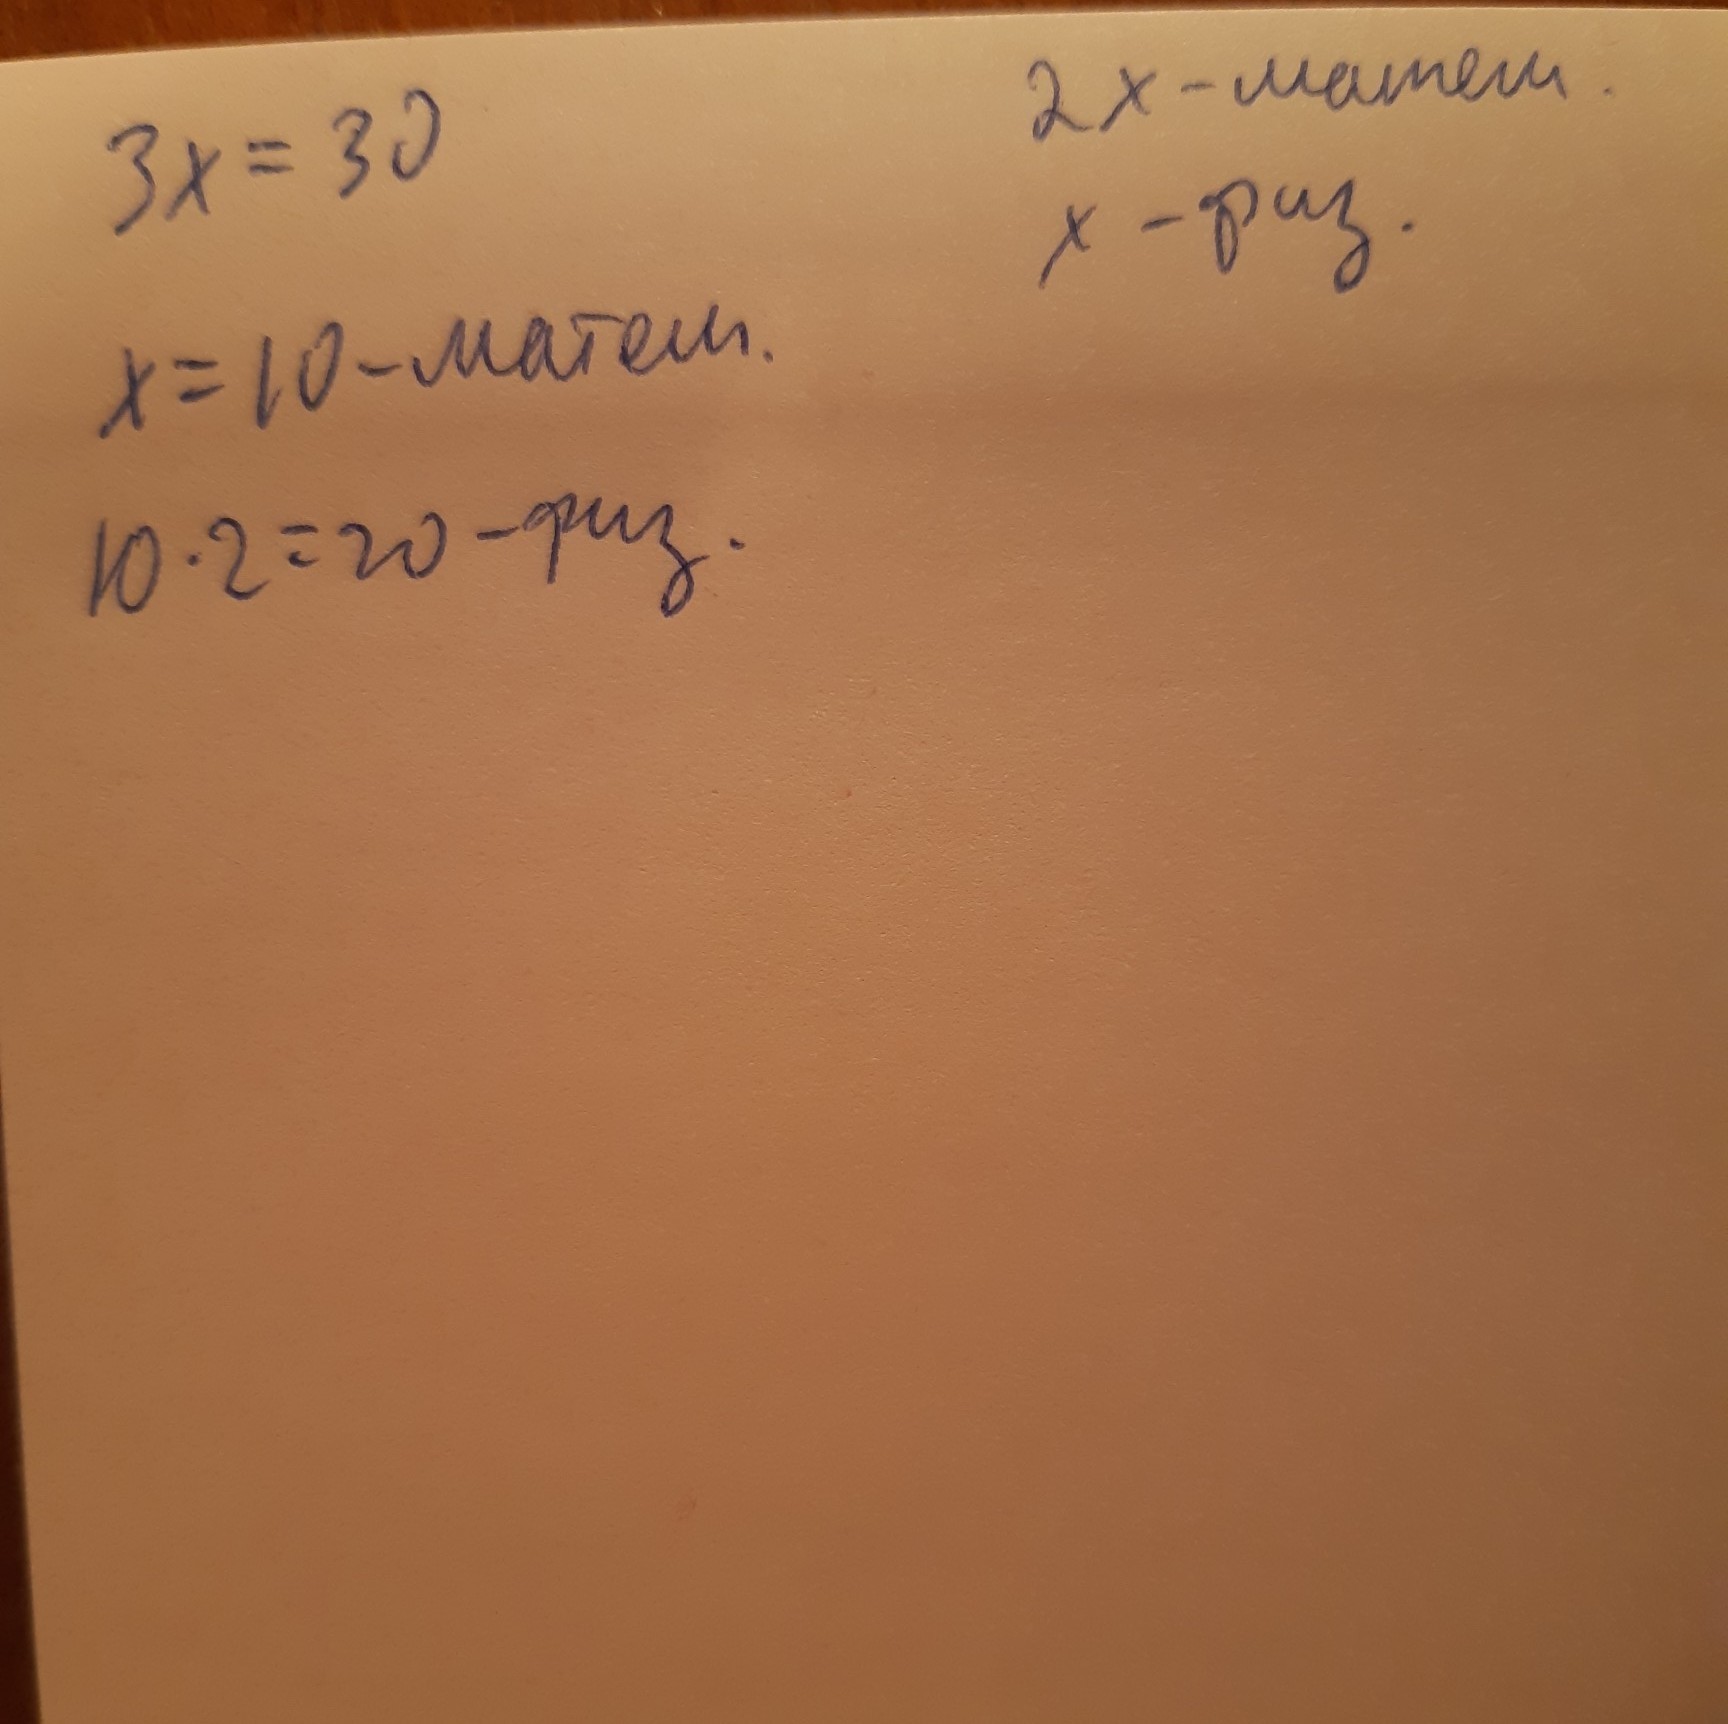 3x = 30
x = 10 - матем.
10 · 2 = 20 - физ.
2x - матем.
x - физ.